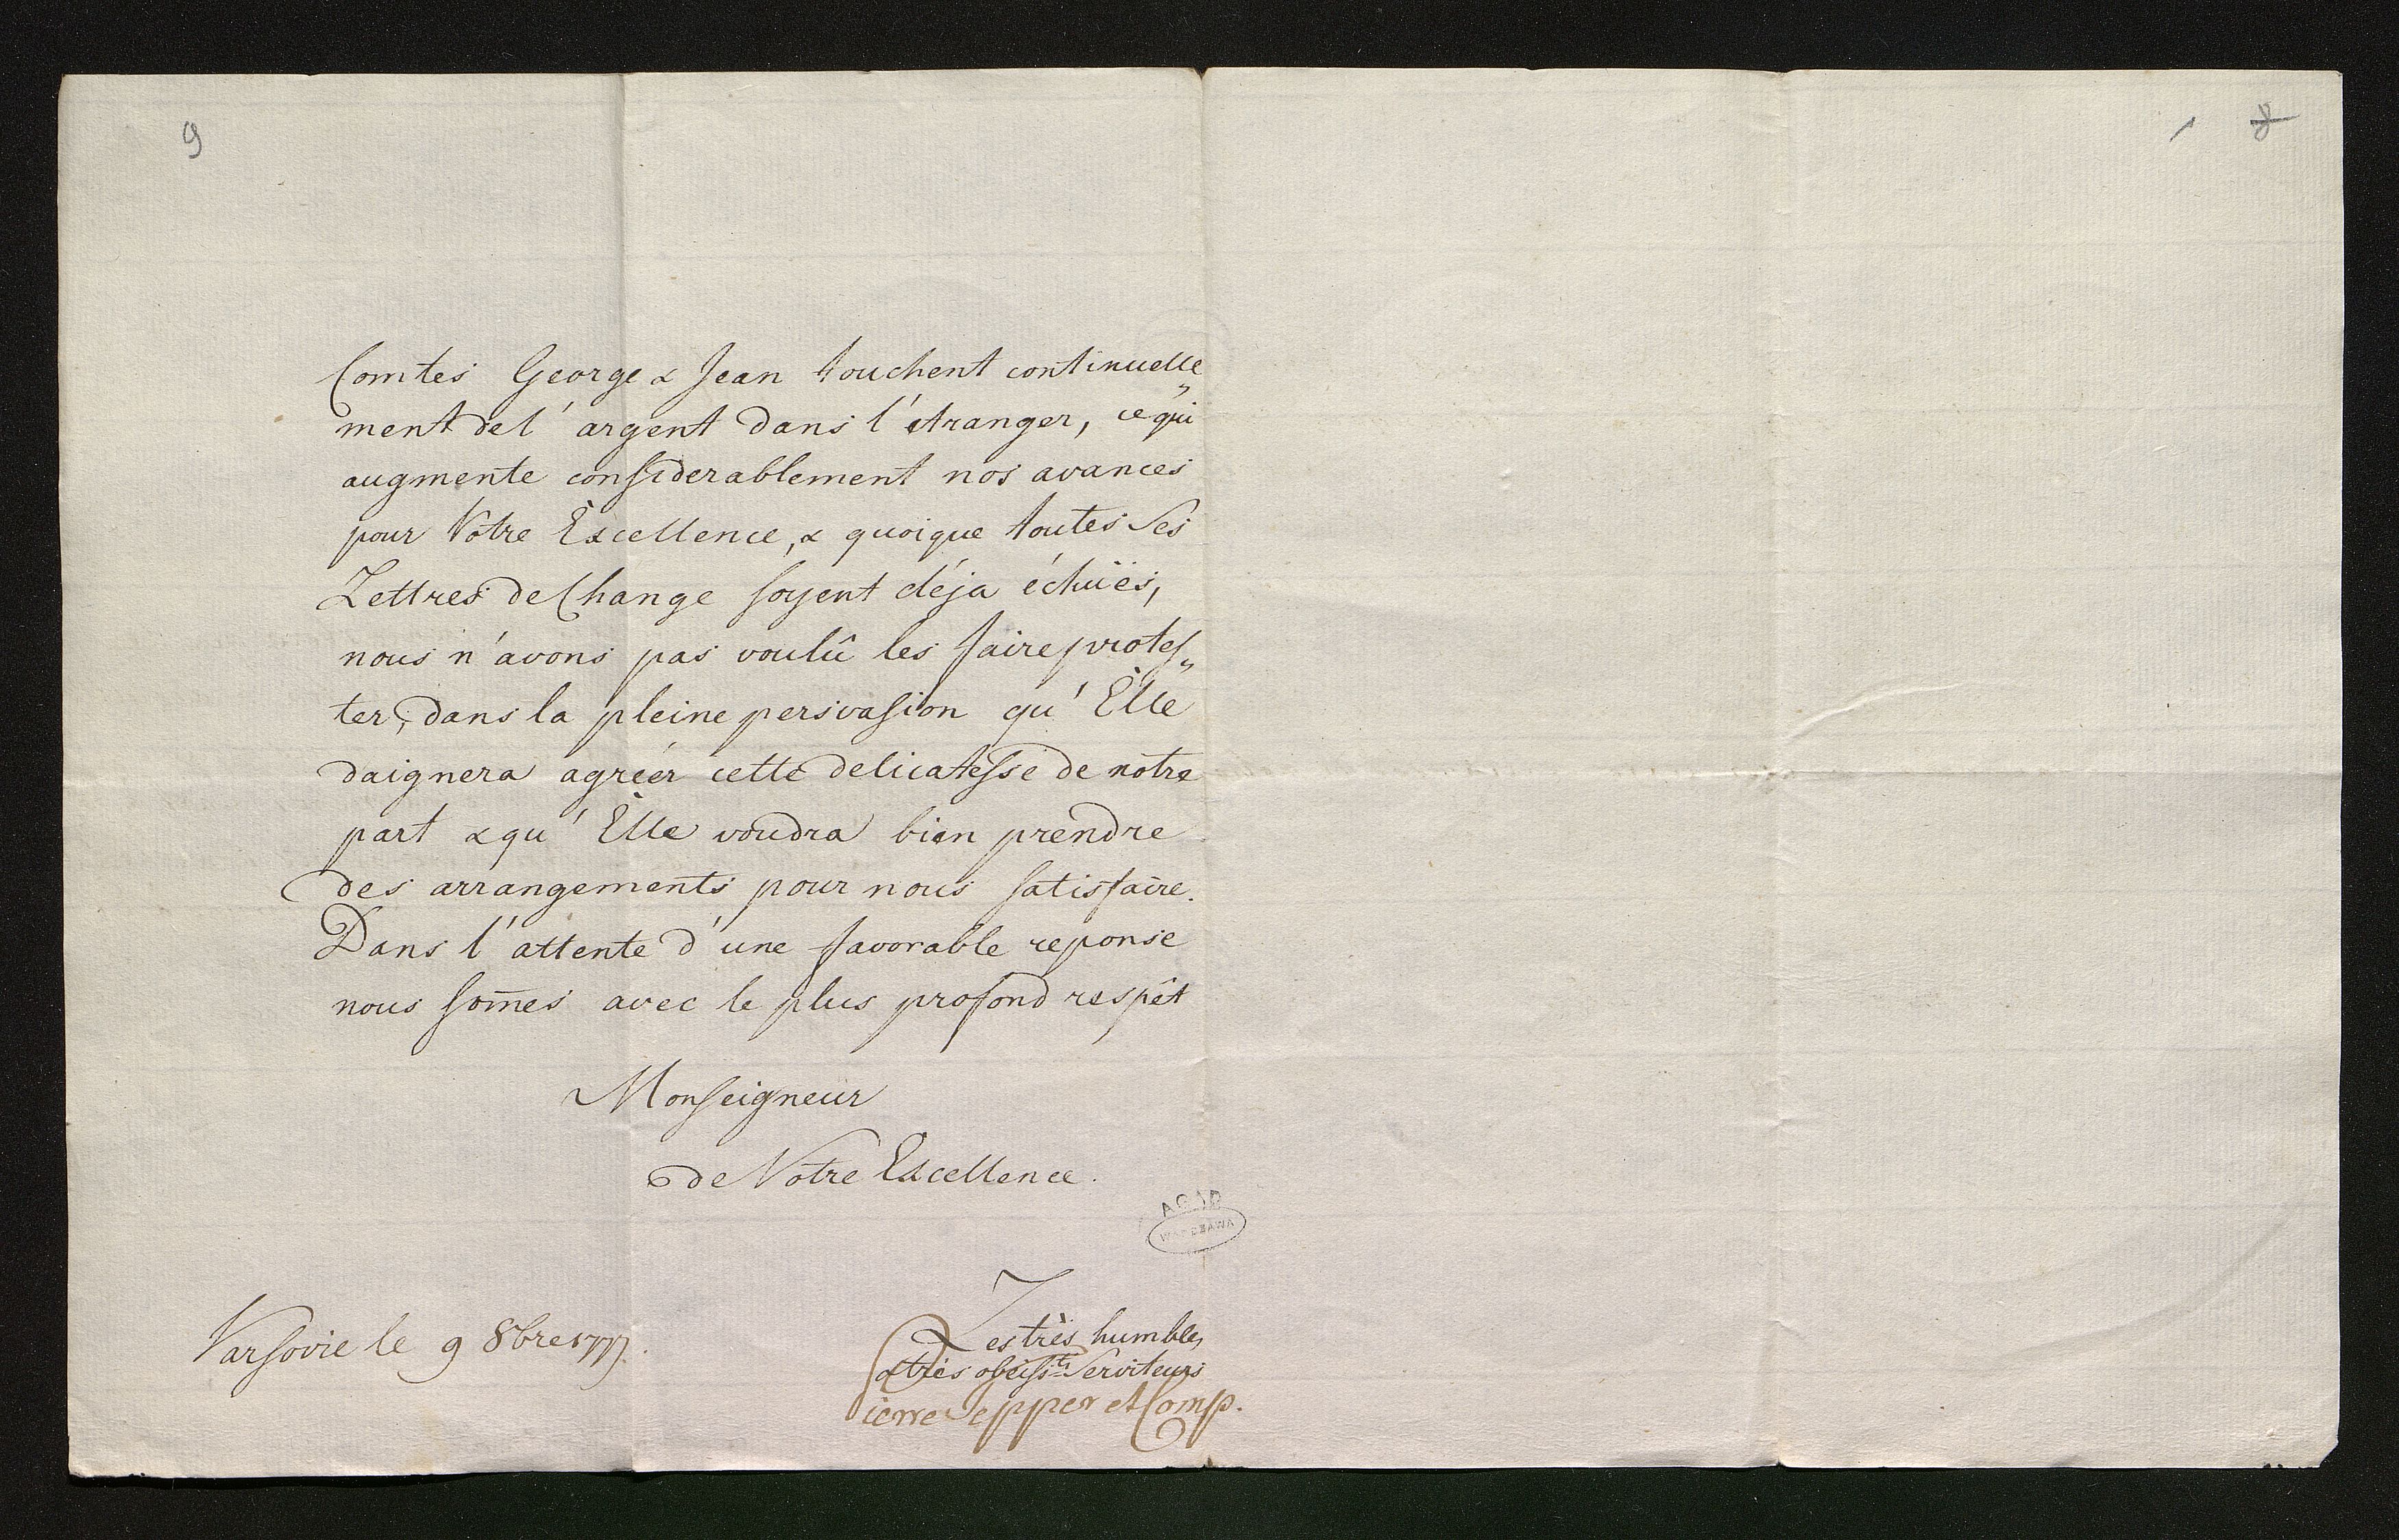 9
8
Comtes George & Jean touchent continuelle„
ment de l'argent dans l'etranger, ce qui
augmente considerablement nos avances
pour Votre Excellence, & quoique toutes Ses
Lettres de Change soyent déja échuïes,
nous n'avons pas voulû les faire protes„
ter, dans la pleine persvasion qu'Elle
daignera agréer cette delicatesse de notre
part & qu'Elle voudra bien prendre
des arrangements pour nous satisfaire.
Dans l'attente d'une favorable reponse
nous som̄es avec le plus profond respêt
Monseigneur
de Votre Excellence.
AGAD
WARSZAWA
Varsovie le 9 8bre 1777.
Les très humbles
& très obéisste Serviteurs
Pierre Tepper et Comp.